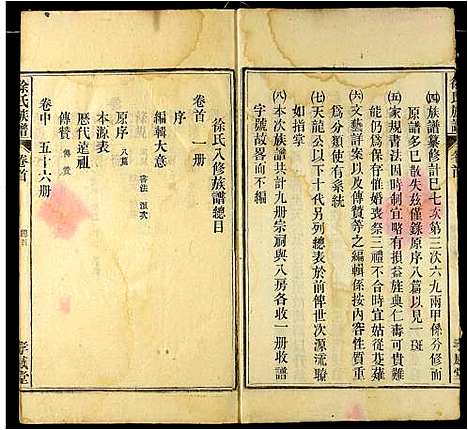 徐氏族譜
㈣族譜纂修計已七次第三次六九兩甲係分修而
原譜多已散失茲僅錄原序八篇以見一斑
㈤家規書法因時制宜略有損益族典仁壽可貴
能仍爲保存惟婚喪祭三禮不合時宜姑從芟薙
㈥文藝詳案以及傳贊等之編輯係按內容性質重
爲分類使有系統
㈦天龍公以下十代另列總表於前俾世次源流瞭
如指掌
㈧本次族譜共計九册宗祠與八房各收一册收譜
字號故畧而不編
徐氏八修族譜總目
卷首 一册
序
編輯大意
原序 八篇
本源表
歷代遠祖
傳贊
卷中 五十六册
徐氏族譜
卷首
孝感堂